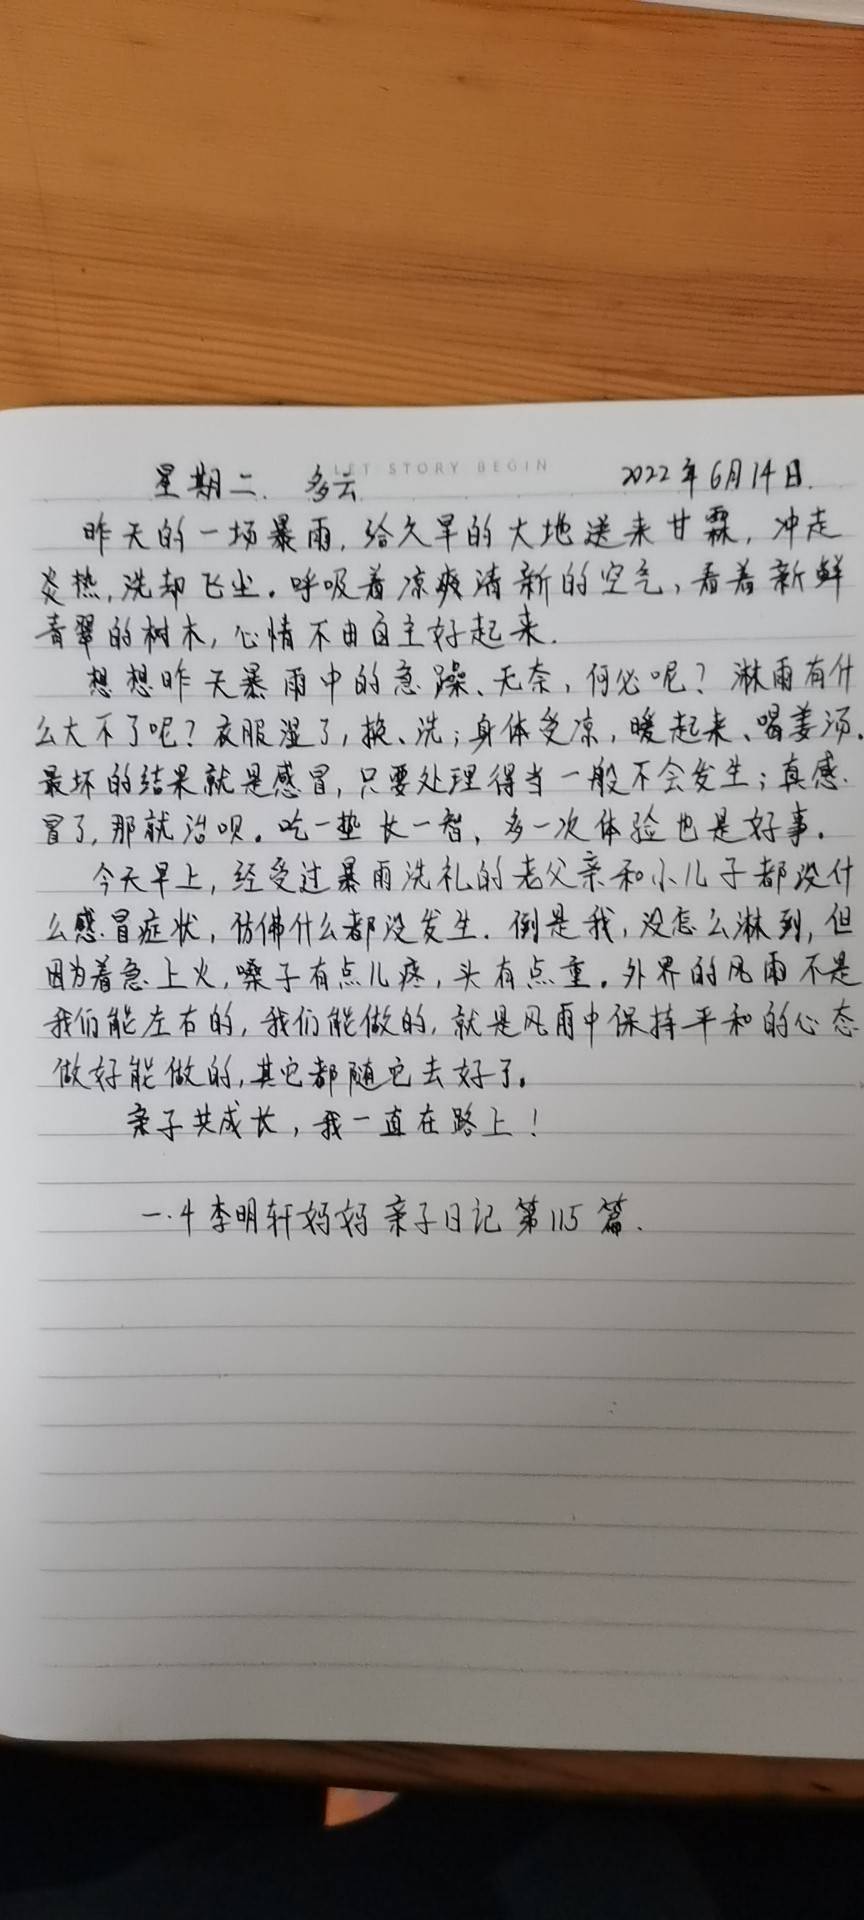 LET STORY BEGIN
星期二. 多云 2022年6月14日.
昨天的一场暴雨,给久旱的大地送来甘霖,冲走
炎热,洗却飞尘。呼吸着凉爽清新的空气,看着新鲜
青翠的树木,心情不由自主好起来.
想想昨天暴雨中的急躁、无奈,何必呢?淋雨有什
么大不了呢?衣服湿了,换、洗;身体受凉,暖起来、喝姜汤.
最坏的结果就是感冒,只要处理得当一般不会发生;真感
冒了,那就治呗。吃一垫长一智,多一次体验也是好事.
今天早上,经受过暴雨洗礼的老父亲和小儿子都没什
么感冒症状,仿佛什么都没发生.倒是我,没怎么淋到,但
因为着急上火,嗓子有点儿疼,头有点重。外界的风雨不是
我们能左右的,我们能做的,就是风雨中保持平和的心态
做好能做的,其它都随它去好了。
亲子共成长,我一直在路上!
一.4李明轩妈妈亲子日记第115篇.